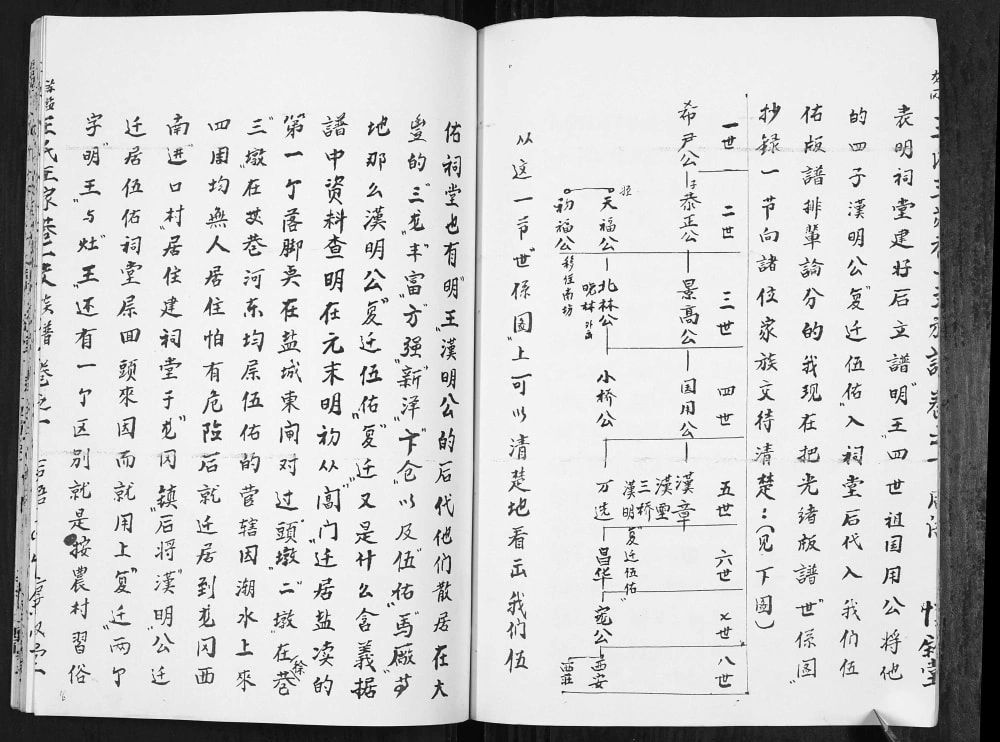 表明祠堂建好后立譜"明"王"四世祖国用公将他
的四子漢明公"复"迁伍佑"入祠堂后代入我们伍
佑版譜排輩論分的我现在把光绪版譜"世"係图"
抄録一节向諸位家族交待清楚：(见下图)
一世 二世 三世 四世 五世 六世 七世 八世
希尹公—子泰正公—景高公—国用公
漢章
漢雲
三桥
漢明复迁伍佑
侄
天福公—北林公—小桥公—万选—昌华—寵公—西安
晓林
西莊
初福公 移住南坊
从这一节"世"係图"上可以清楚地看出我们伍
佑祠堂也有"明"王"漢明公的后代他们散居在大
豊的"三龙"丰"富"方"强"新"洋"卞"仓"以及伍"佑"馬"廠"等
地那么漢明公"复"迁伍佑"复"迁又是什么含義"据
譜中资料查明在元末明初从"閶"门"迁居盐渎的
第一个落脚点在盐城東闸对过"頭"墩"二"墩"在徐巷
三"墩"在其巷河东均属伍佑的菅辖因潮水上來
四周均無人居住怕有危险后就迁居到龙冈西
南"进"口村"居住建祠堂于"龙"冈"镇"后将"漢"明公迁
迁居伍佑祠堂属回頭來因而就用上"复"迁"两个
字"明"王"与"灶"王"还有一个区别就是按農村習俗
王氏王家巷